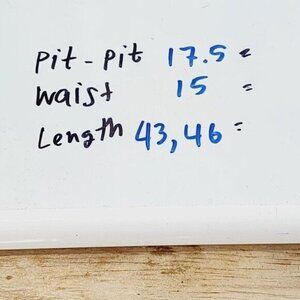 pit - pit 17.5 =
waist 15 =
Length 43,46 =